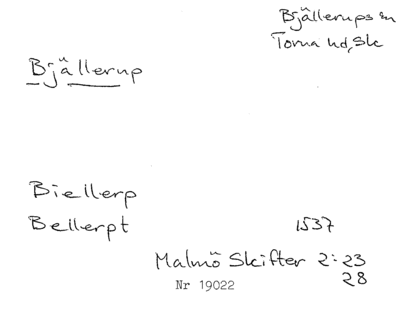 Bjällerups sn
Torna hd, Sk
Bjällerup
Biellerp
Bellerpt 1537
Malmö Skifter 2:23
28
Nr 19022